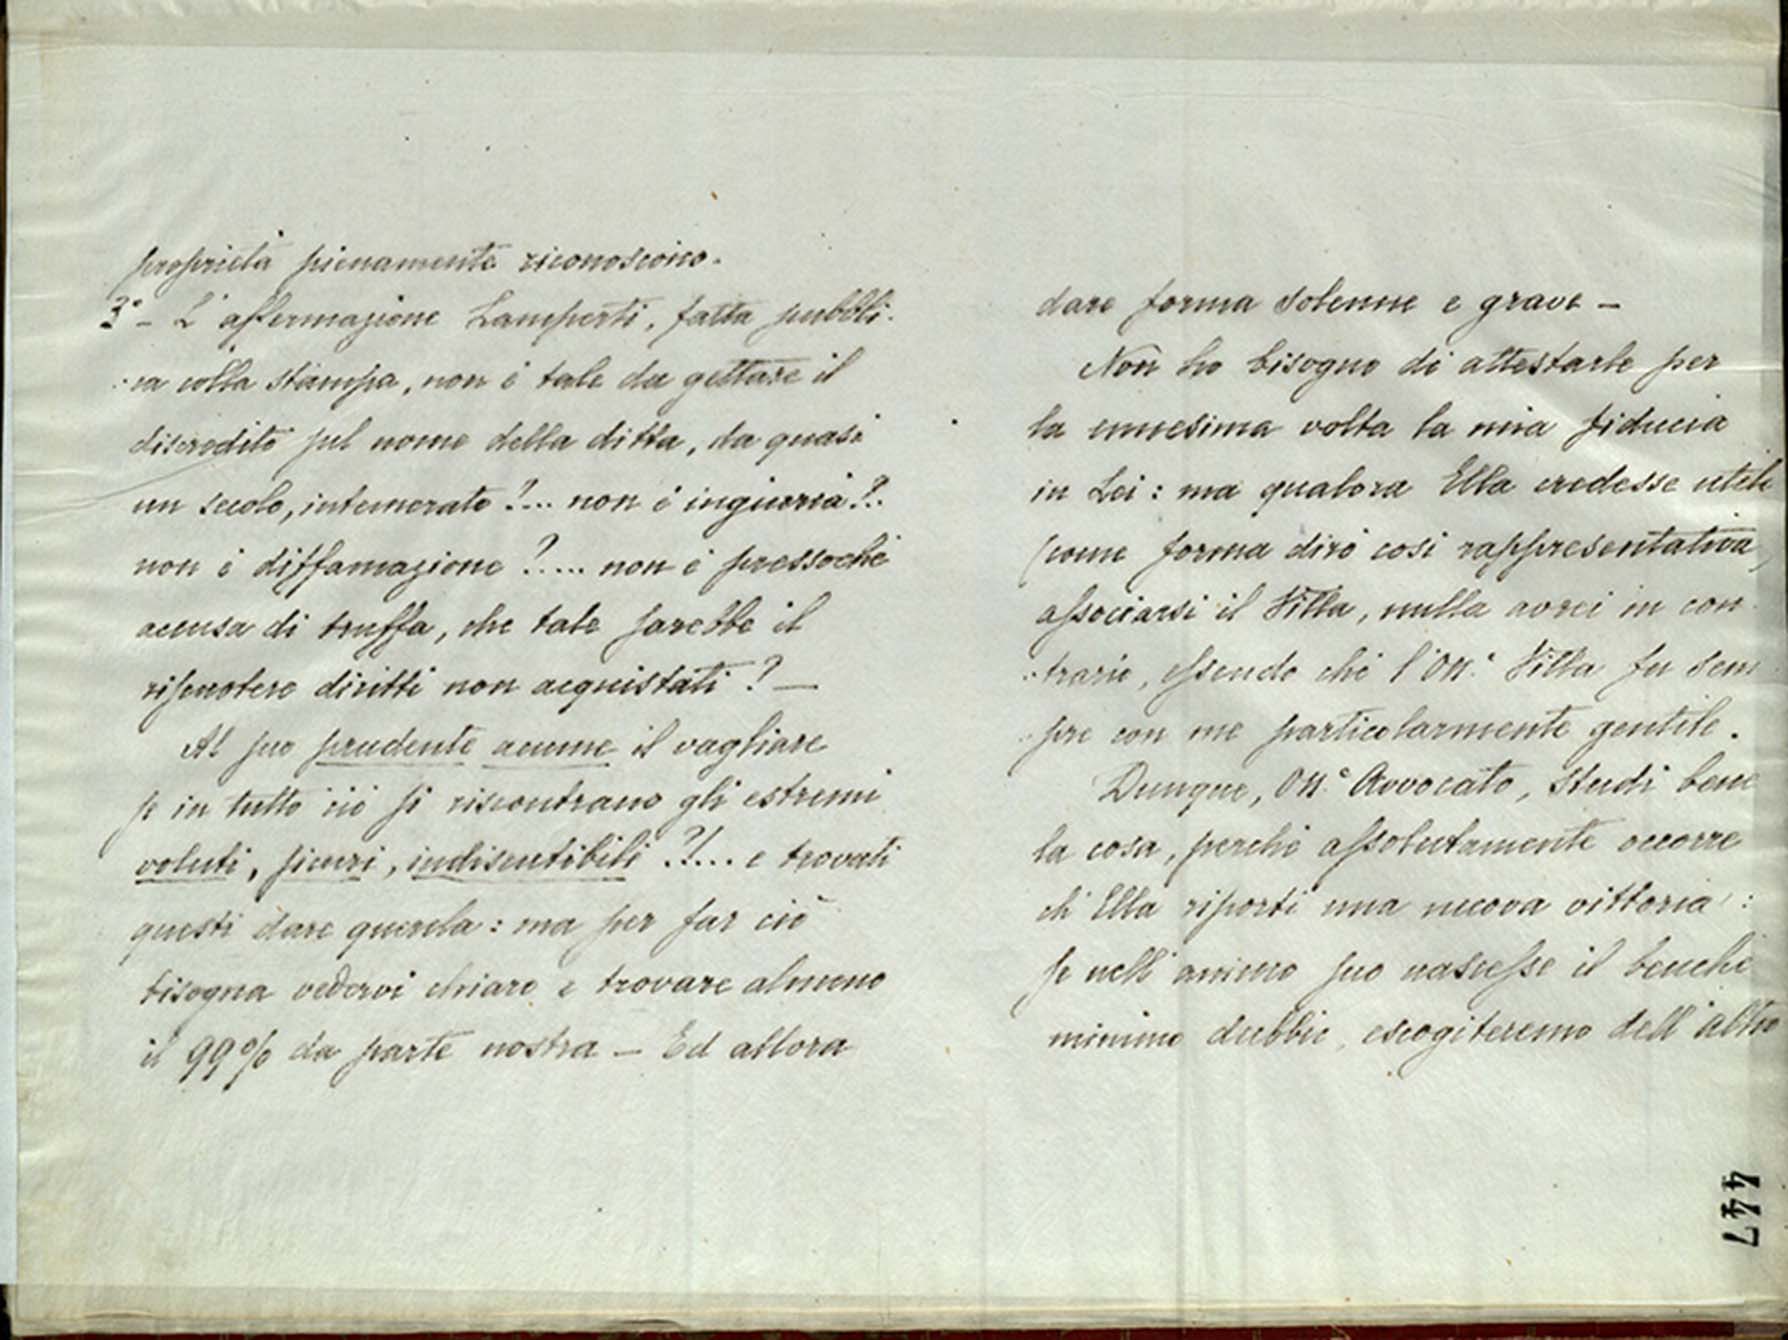 proprietà pienamente riconoscono.
3° – L'affermazione Lamperti, fatta pubbli-
-ca colla stampa, non è tale da gettare il
discredito sul nome della ditta, da quasi
un secolo, intemerato?... non è ingiuria?..
non è diffamazione?..... non è pressochè
accusa di truffa, che tale sarebbe il
riscuotere diritti non acquistati? —
Al suo prudente acume il vagliare
se in tutto ciò si riscontrano gli estremi
voluti, sicuri, indiscutibili?!... e trovati
questi dare querela: ma per far ciò
bisogna vedervi chiaro e trovare almeno
il 99% da parte nostra — Ed allora
dare forma solenne e grave —
Non ho bisogno di attestarle per
la ennesima volta la mia fiducia
in Lei: ma qualora Ella credesse utile
(come forma dirò così rappresentativa)
associarsi il Villa, nulla avrei in con-
-trario, essendo chè l'On.° Villa fu sem-
-pre con me particolarmente gentile.
Dunque, On.° Avvocato, studi bene
la cosa, perchè assolutamente occorre
ch'Ella riporti una nuova vittoria:
se nell'animo suo nascesse il benchè
minimo dubbio, escogiteremo dell'altro
447